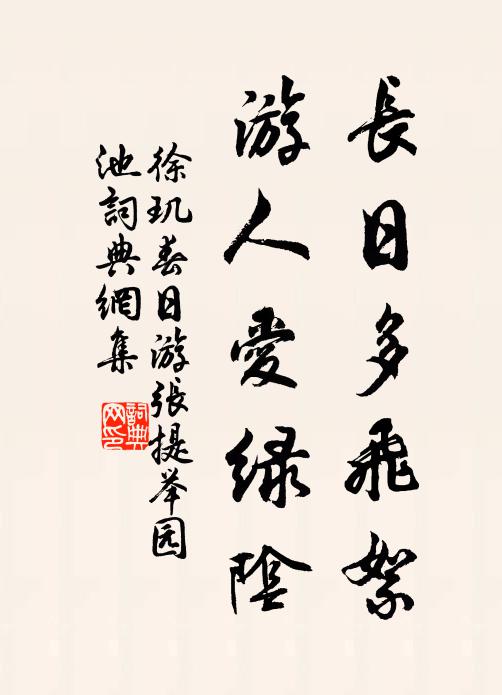 長日多飛絮
游人愛绿陰
徐玑春日游張提举园
池詞典網集
詞典网印